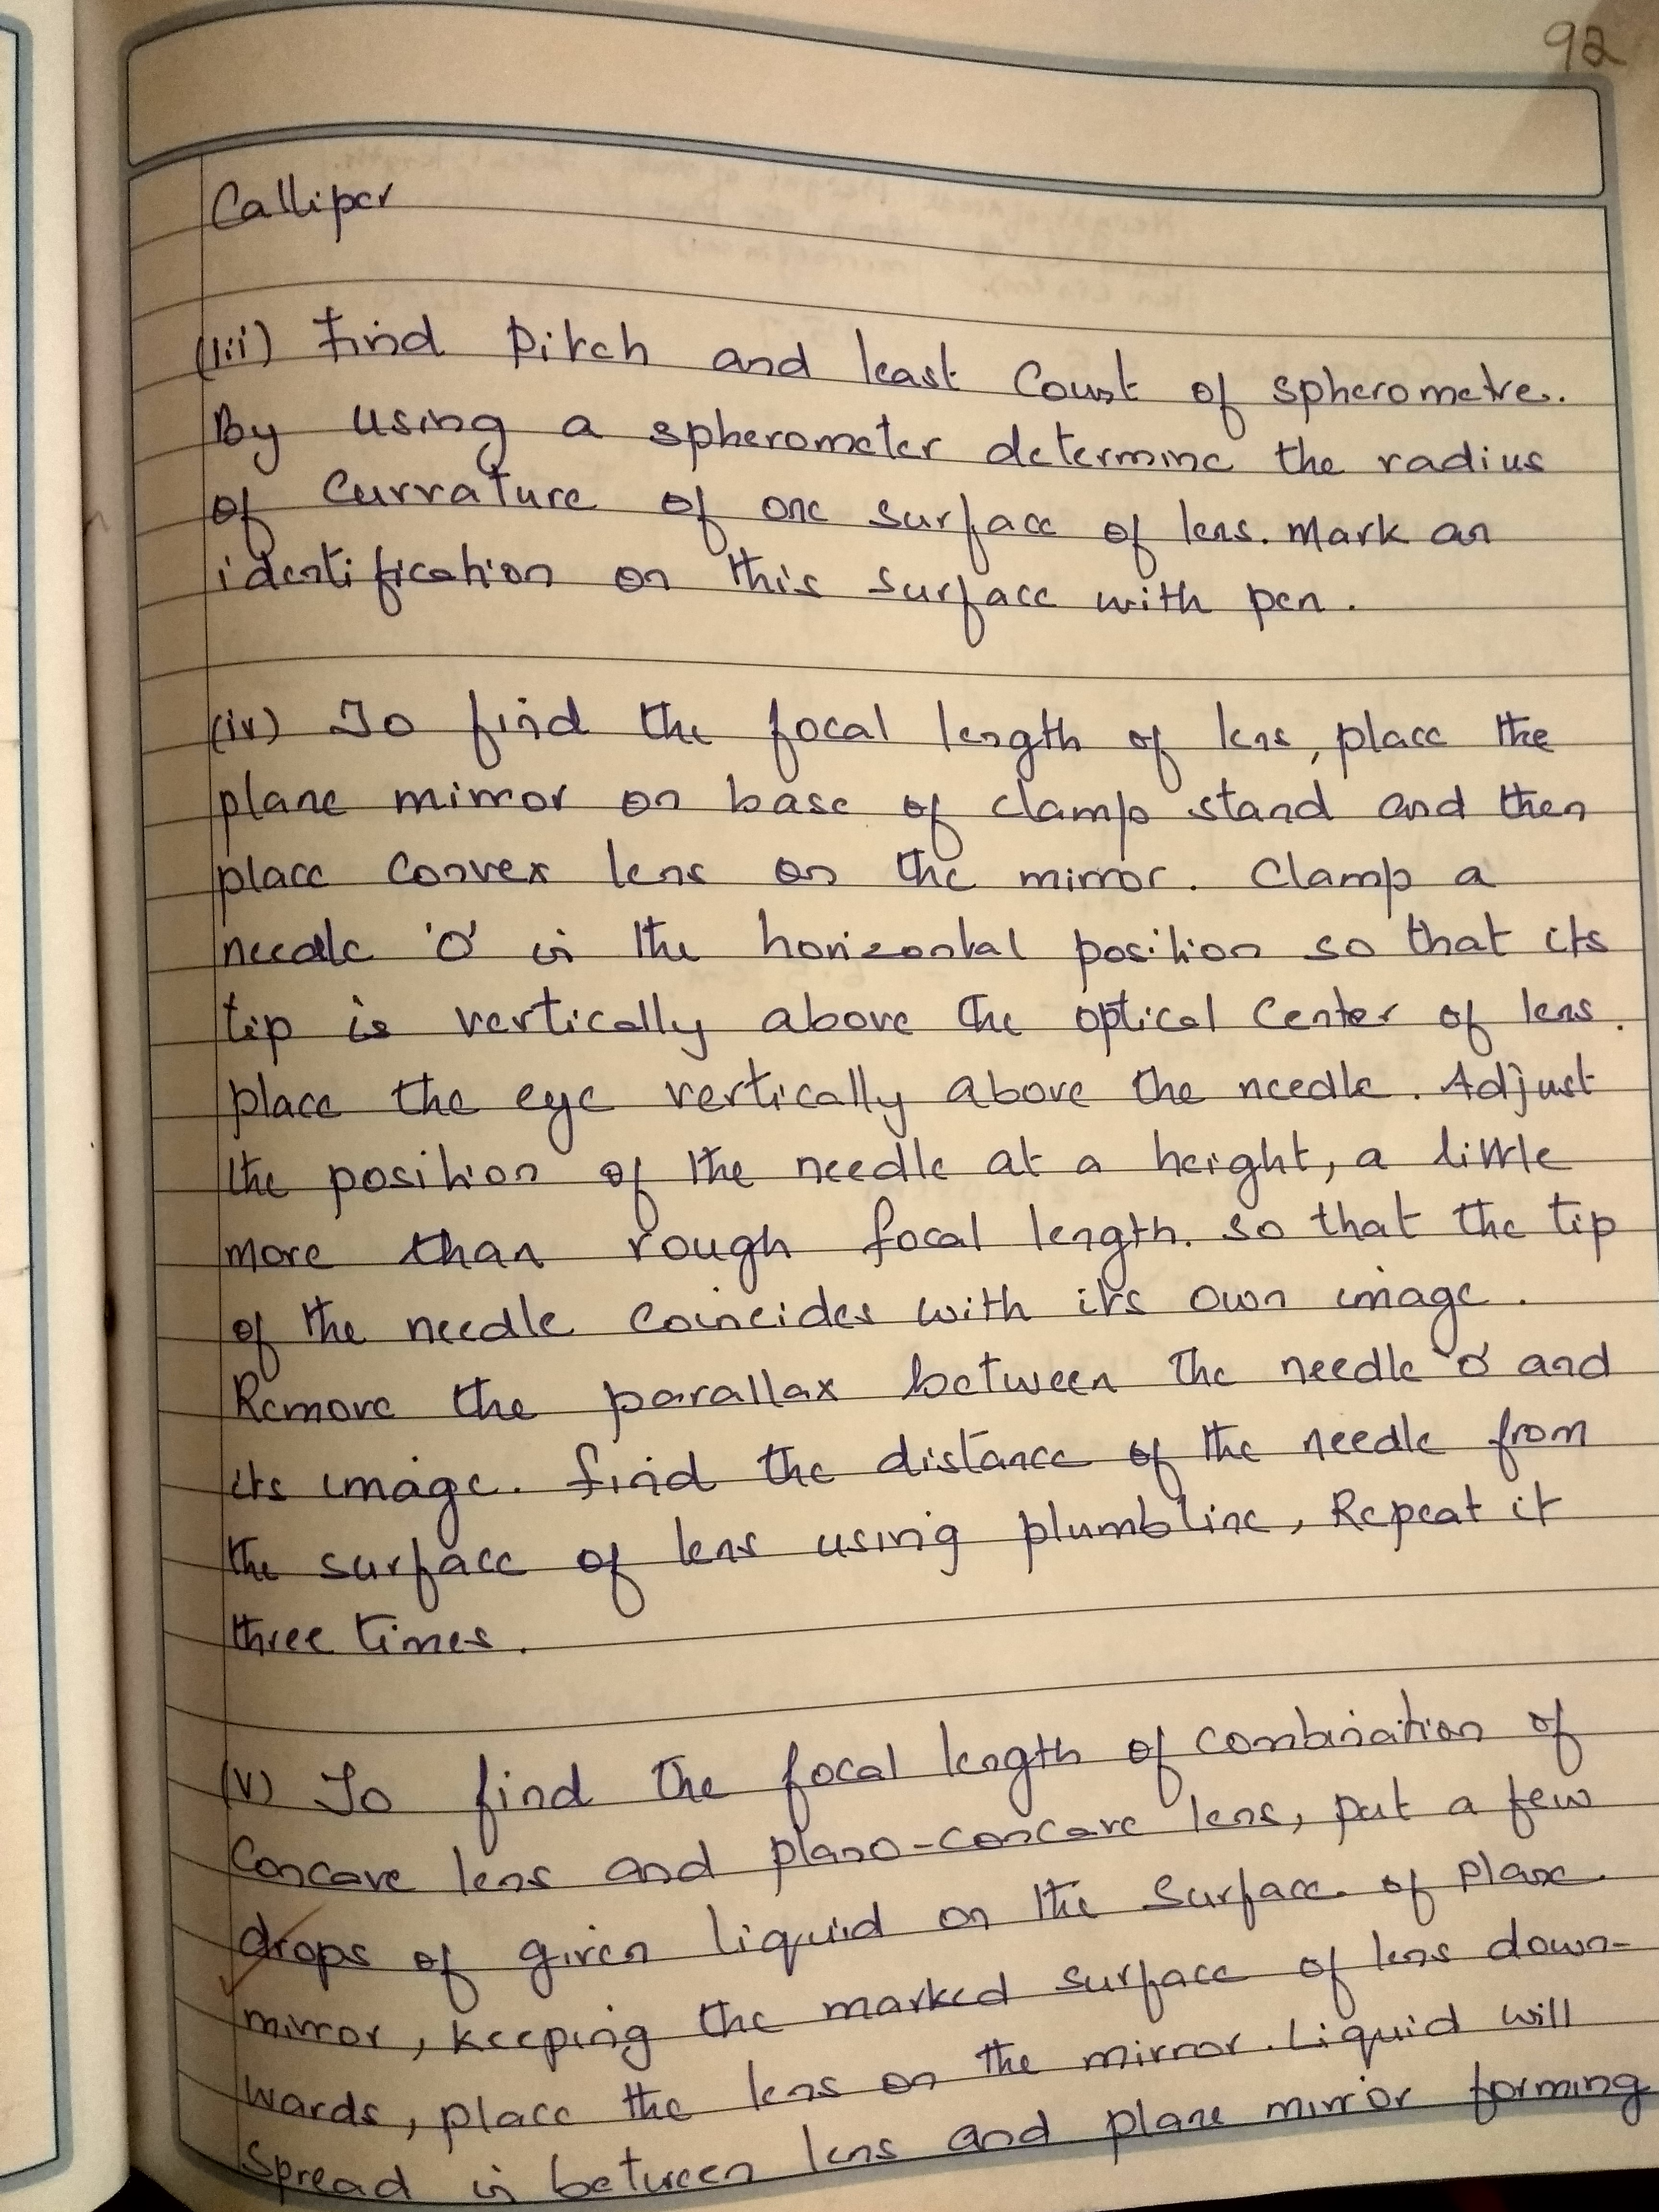 92
Calliper
(iii) Find Pitch and least Count of spherometre.
By using a spherometer determine the radius
of Curvature of one surface of lens. Mark an
identification on this surface with pen.
(iv) To find the focal length of lens, place the
plane mirror on base of clamp stand and then
place Convex lens on the mirror. Clamp a
needle 'O' in the horizontal position so that its
tip is vertically above the optical Center of lens.
place the eye vertically above the needle. Adjust
the position of the needle at a height, a little
more than rough focal length. so that the tip
of the needle Coincides with its own image.
Remove the parallax between the needle 'O' and
its image. find the distance of the needle from
the surface of lens using plumbline, Repeat it
three times.
(v) To find the focal length of combination of
Concave lens and plano-concave lens, put a few
drops of given liquid on the Surface of plane
mirror, keeping the marked surface of lens down-
wards, place the lens on the mirror. Liquid will
Spread in between lens and plane mirror forming